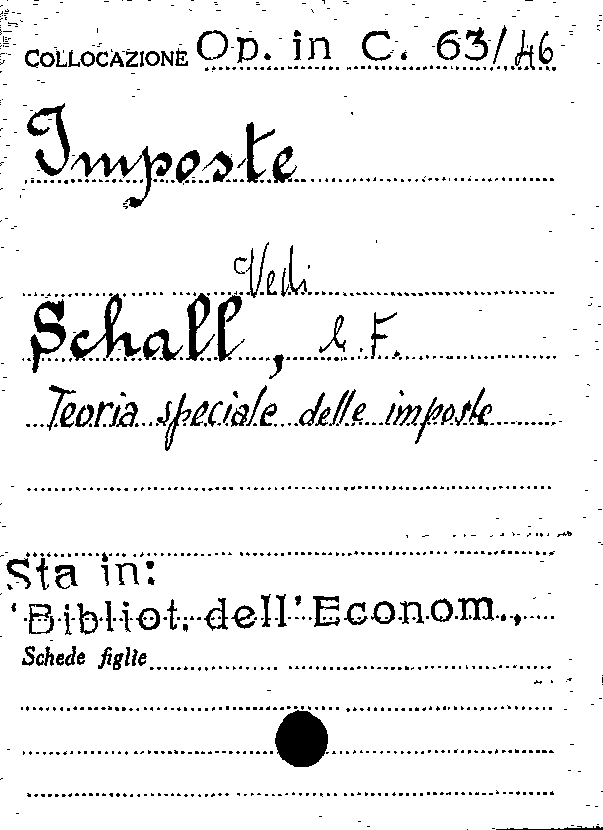 COLLOCAZIONE Op. in C. 63/46
Imposte
Vedi
Schall, G. F.
Teoria speciale delle imposte
Sta in:
'Bibliot. dell'Econom.,
Schede figlie